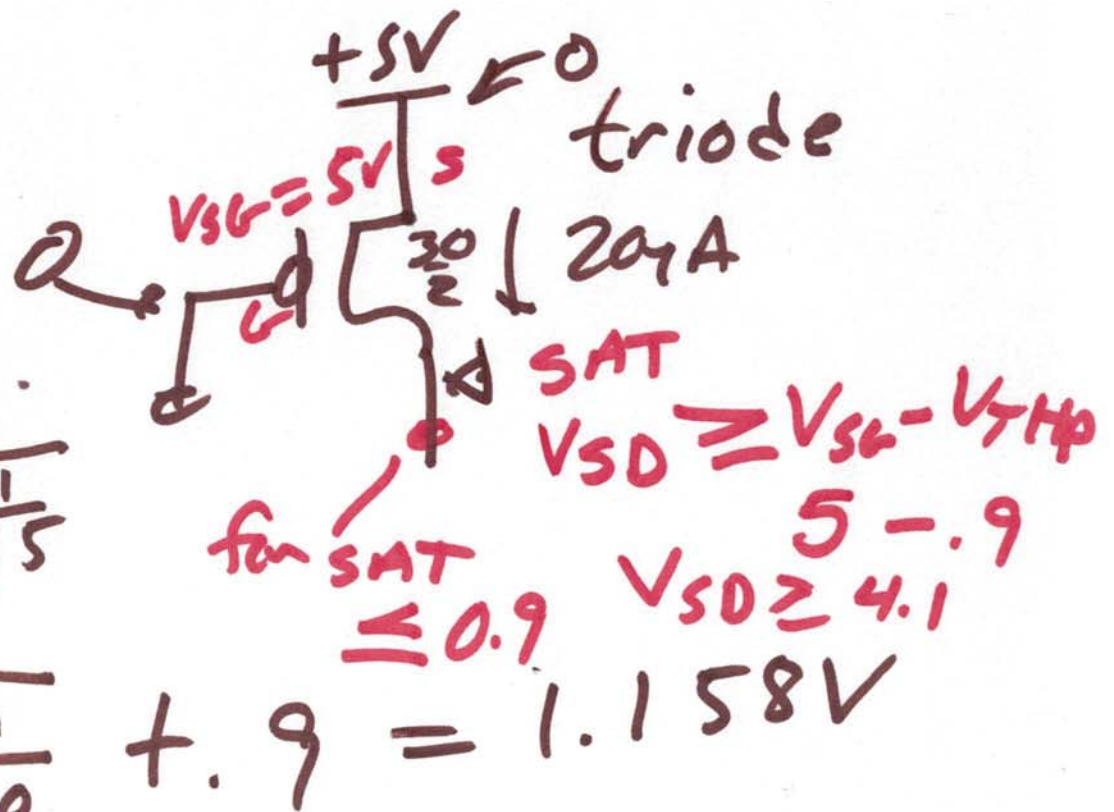 +5V
0
triode
VSG = 5V
S
30
2
20μA
G
SAT
VSD ≥ VSG - VTHP
5 - .9
for SAT
≤ 0.9
VSD ≥ 4.1
+ .9 = 1.158V